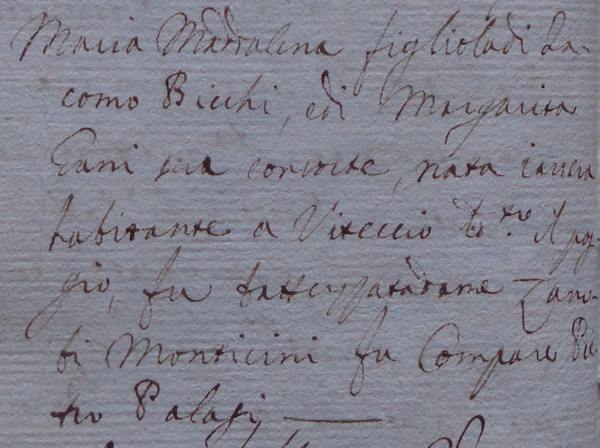 Maria Madalena figliola di Ia-
como Bicchi, e di Margarita
sua consorte, nata
habitante a Viteccio
gio, fu battezzata da me Zano-
bi Monticini fu Compare Pie-
tro Palagi